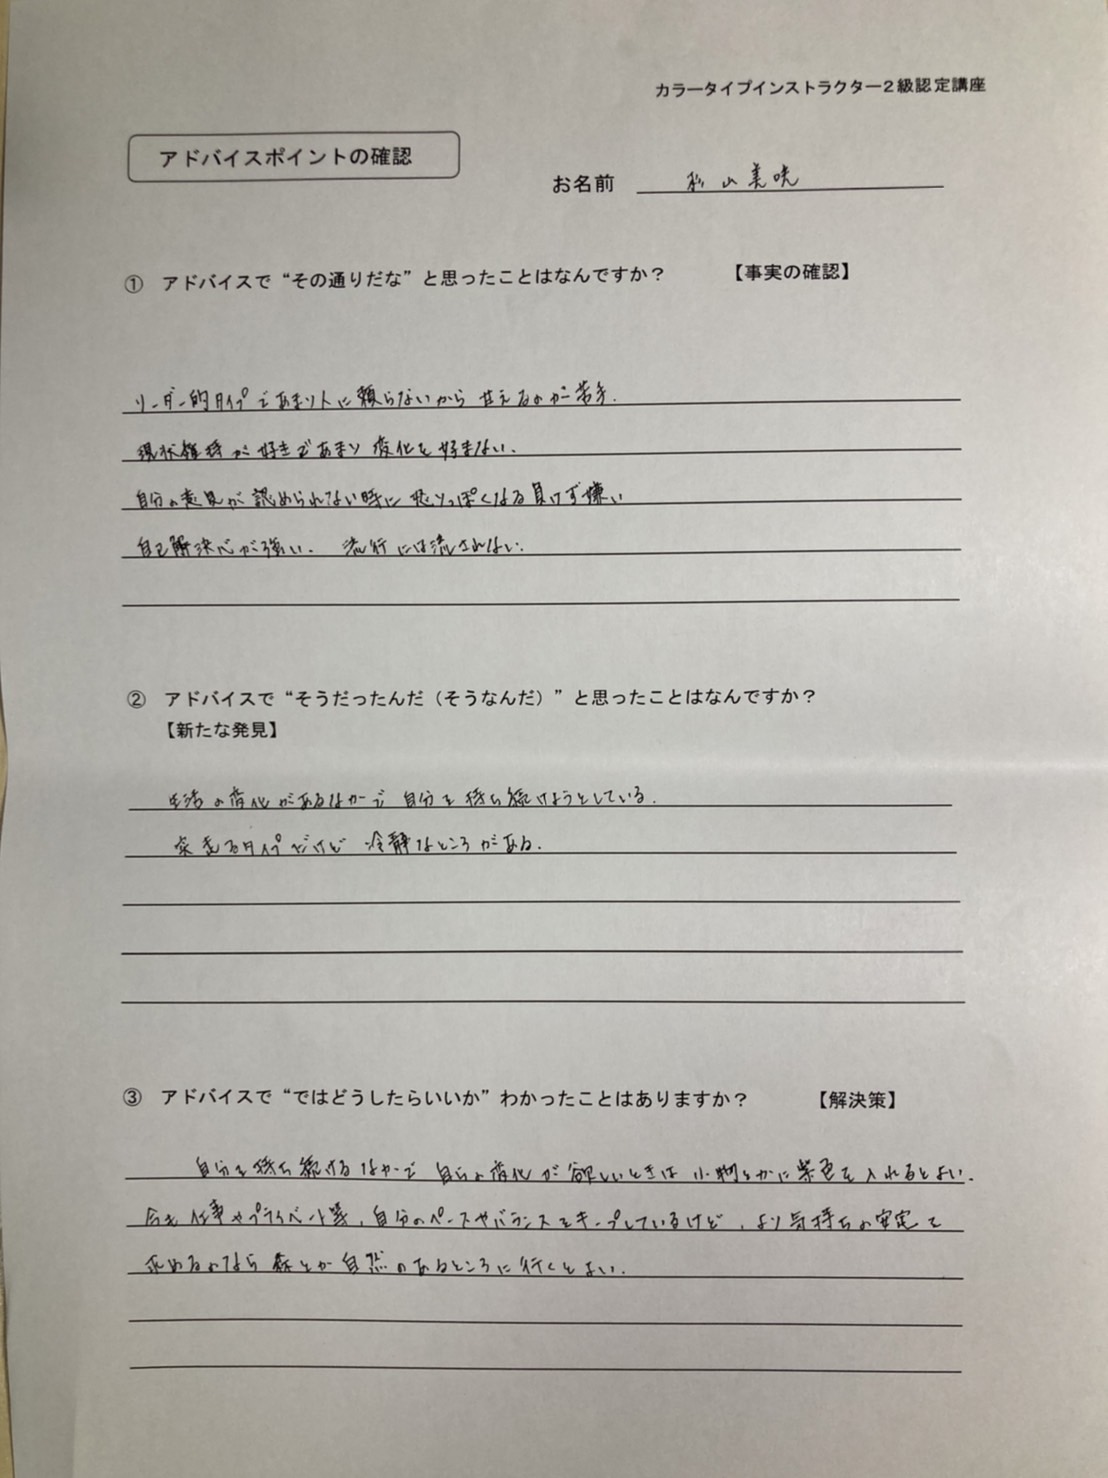 カラータイプインストラクター2級認定講座
アドバイスポイントの確認
お名前 杉山美咲
① アドバイスで“その通りだな”と思ったことはなんですか？ 【事実の確認】
リーダー的タイプであまり人に頼らないから甘えるのが苦手.
現状維持が好きであまり変化を好まない.
自分の意見が認められない時に怒りっぽくなる負けず嫌い
自己解決心が強い. 流行には流されない.
② アドバイスで“そうだったんだ（そうなんだ）”と思ったことはなんですか？
【新たな発見】
生活の変化があるなかで自分を持ち続けようとしている.
突走るタイプだけど冷静なところがある.
③ アドバイスで“ではどうしたらいいか”わかったことはありますか？ 【解決策】
自分を持ち続けるなかで自らの変化が欲しいときは小物とかに紫色を入れるとよい.
今も仕事やプライベート等、自分のペースやバランスをキープしているけど、より気持ちの安定を
求めるのなら森とか自然のあるところに行くとよい.